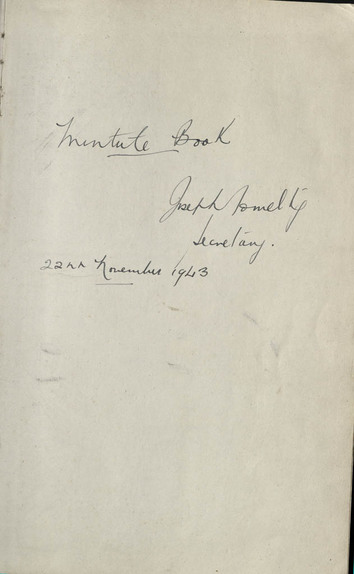 Mintute Book
Joseph Tomelty
Secretary.
22nd November 1943